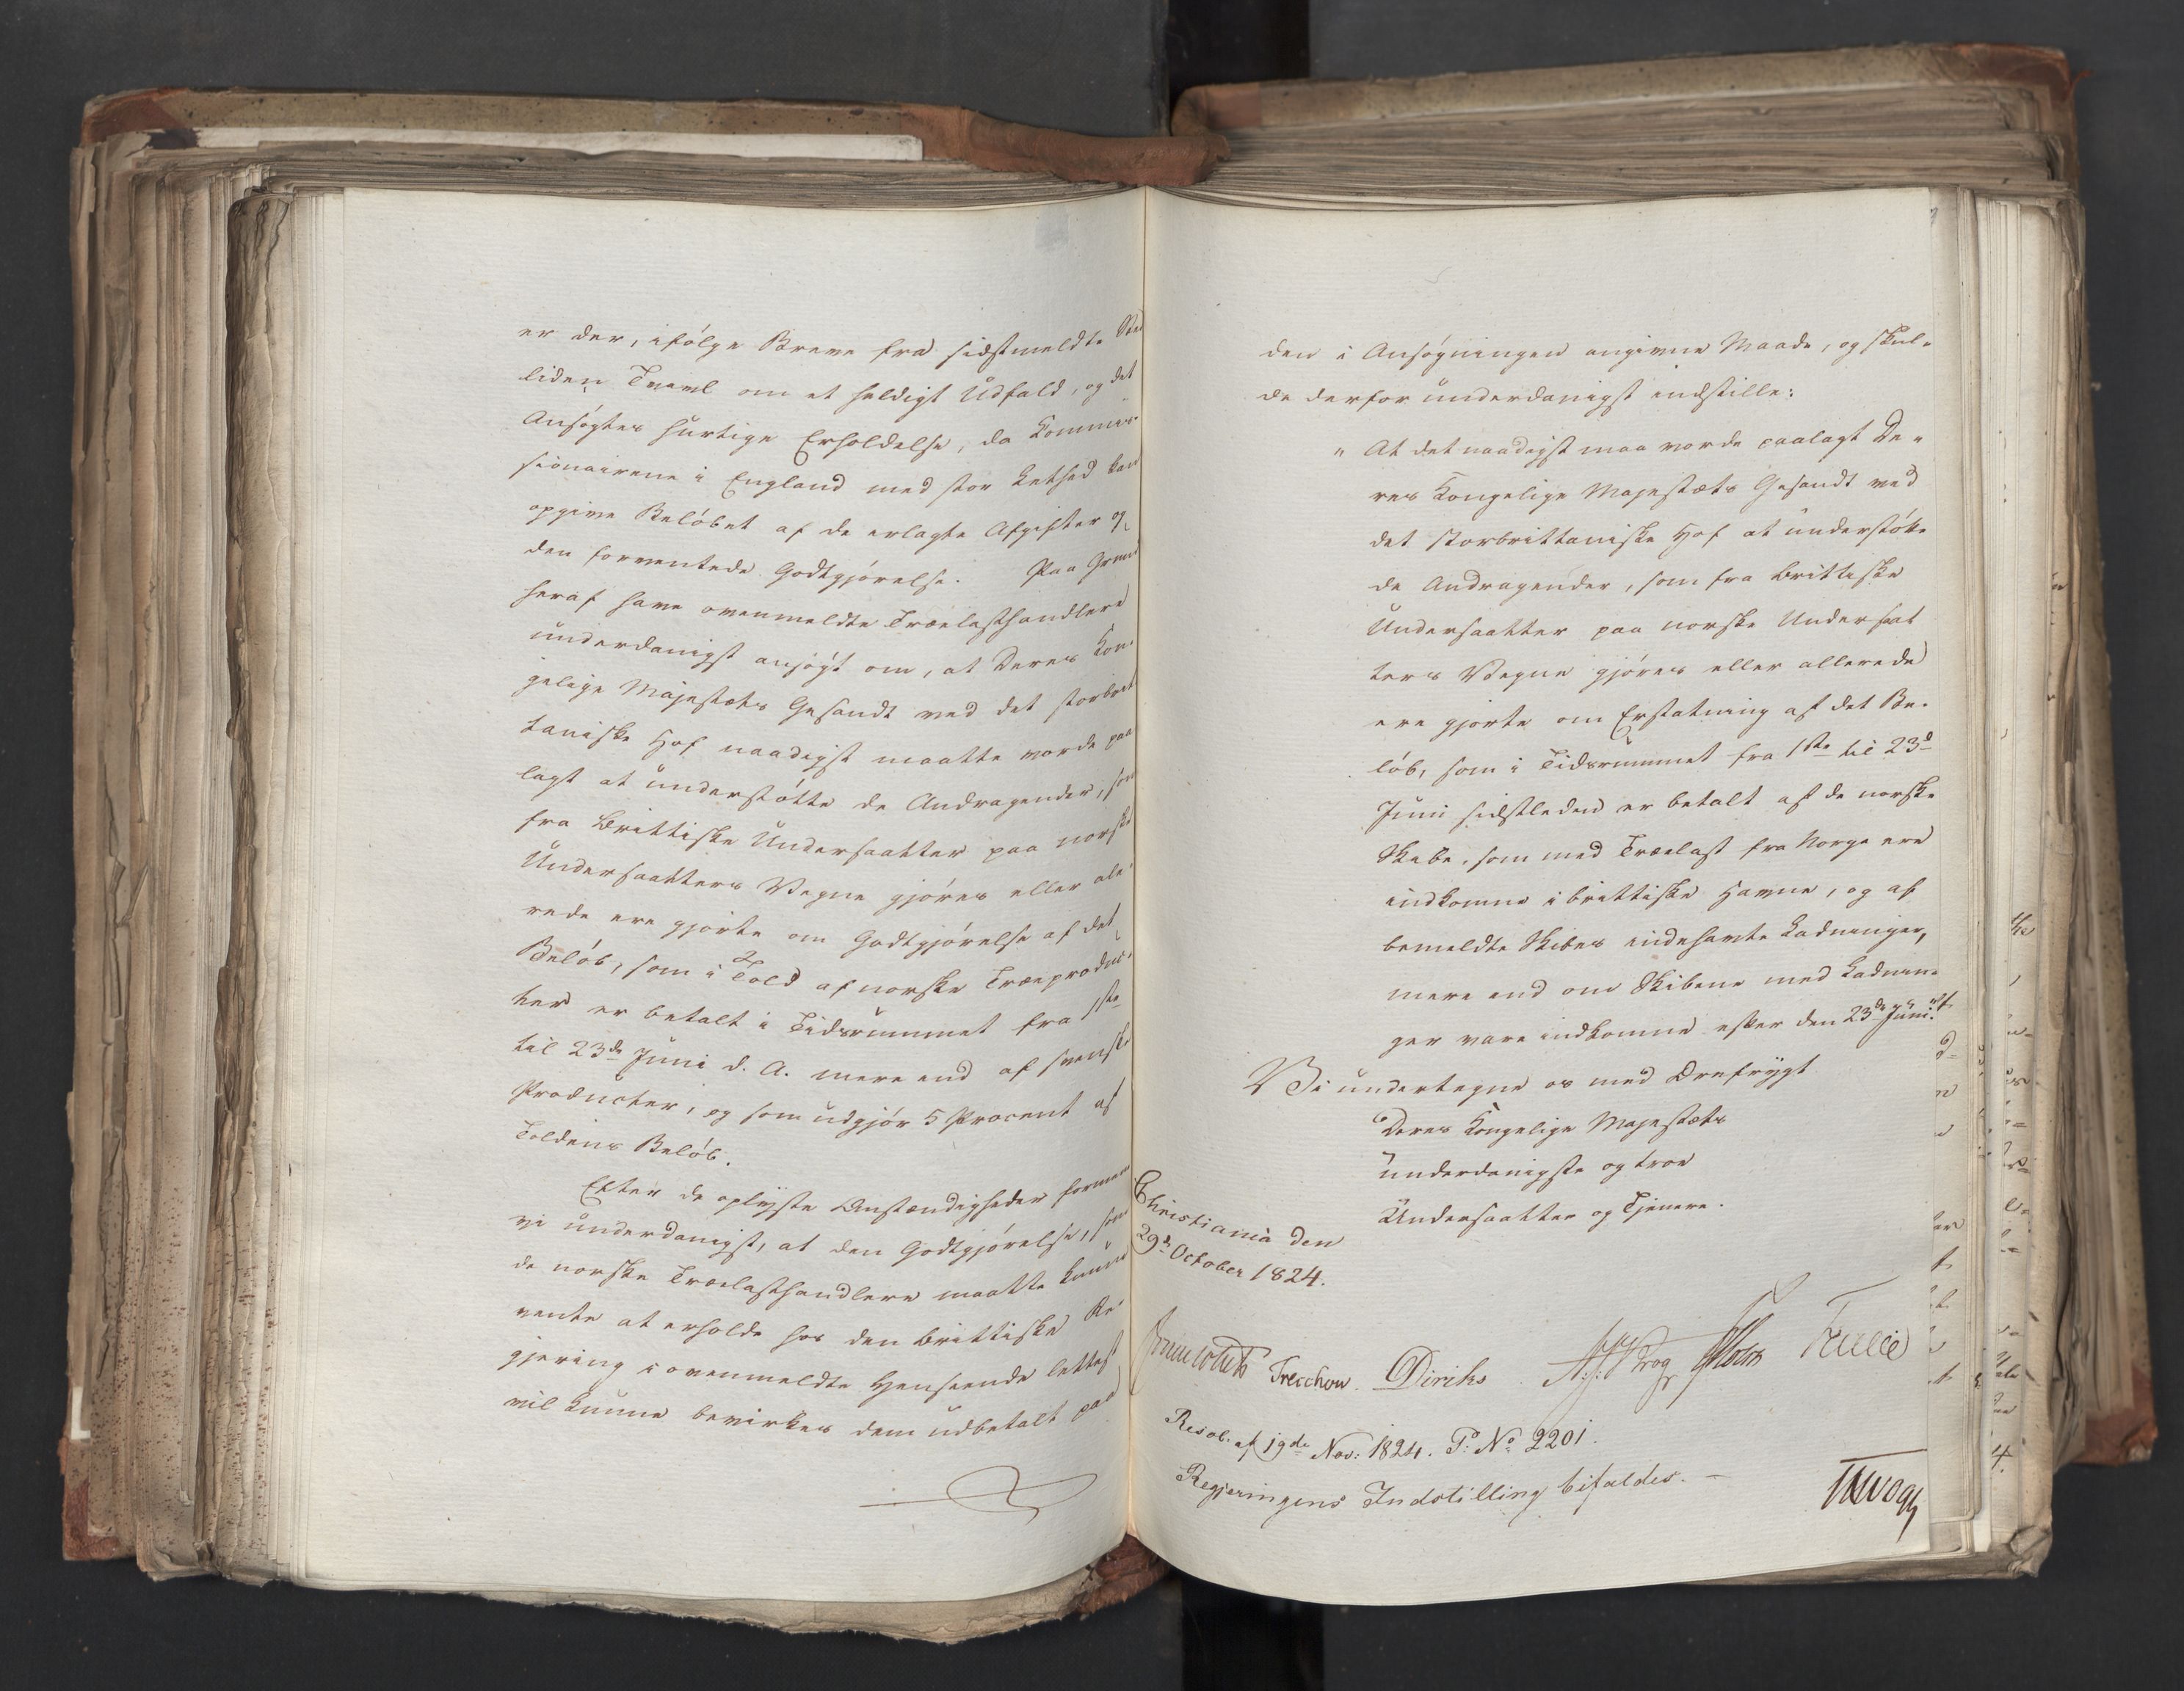 er der, ifölge Breve fra sidstmeldte Sted
liden Tvivl om et heldigt Udfald, og det
Ansögtes hurtige Erholdelse, da Kommis-
sionairene i England med stor Lethed kan
opgive Belöbet af de erlagte Afgifter og
den forventede Godtgjörelse. Paa Grund
heraf have ovenmeldte Trælasthandlere
underdanigst ansögt om, at Deres Kon-
gelige Majestæts Gesandt ved det storbrit
taniske Hof naadigst maatte vorde paa
lagt at understötte de Andragender, som
fra Brittiske Undersaatter paa norske
Undersaatters Vegne gjöres eller alle-
rede ere gjorte om Godtgjörelse af det
Belöb, som i Told af norske Træproduc-
ter er betalt i Tidsrummet fra 1ste
til 23de Juni d. A. mere end af svenske
Producter, og som udgjör 5 Procent af
Toldens Belöb.
Efter de oplyste Omstændigheder formene
vi underdanigst, at den Godtgjörelse, som
de norske Trælasthandlere maatte kunne
vente at erholde hos den brittiske Re-
gjering i ovenmeldte Henseende lettest
vil kunne bevirkes dem udbetalt paa
den i Ansögningen angivne Maade, og skul-
de derfor underdanigst indstille:
"At det naadigst maa vorde paalagt De-
res Kongelige Majestæts Gesandt ved
det storbrittaniske Hof at understötte
de Andragender, som fra brittiske
Undersaatter paa norske Undersaat
ters Vegne gjöres eller allerede
ere gjorte om Erstatning af det Be-
löb, som i Tidsrummet fra 1ste til 23d
Juni sidstleden er betalt af de norske
Skibe, som med Trælast fra Norge ere
indkomne i brittiske Havne, og af
bemeldte Skibes indehavte Ladninger,
mere end om Skibene med Ladnin-
ger vare indkomne efter den 23de Juni."
Vi undertegne os med Ærefrygt
Deres Kongelige Majestæts
underdanigste og troe
Undersaatter og Tjenere.
Christiania den
29de October 1824.
Treschow. Diriks Motzfeldt Fasting
Resol. af 19de Nov: 1824. P: No 2201.
Regjeringens Indstilling bifaldes. –